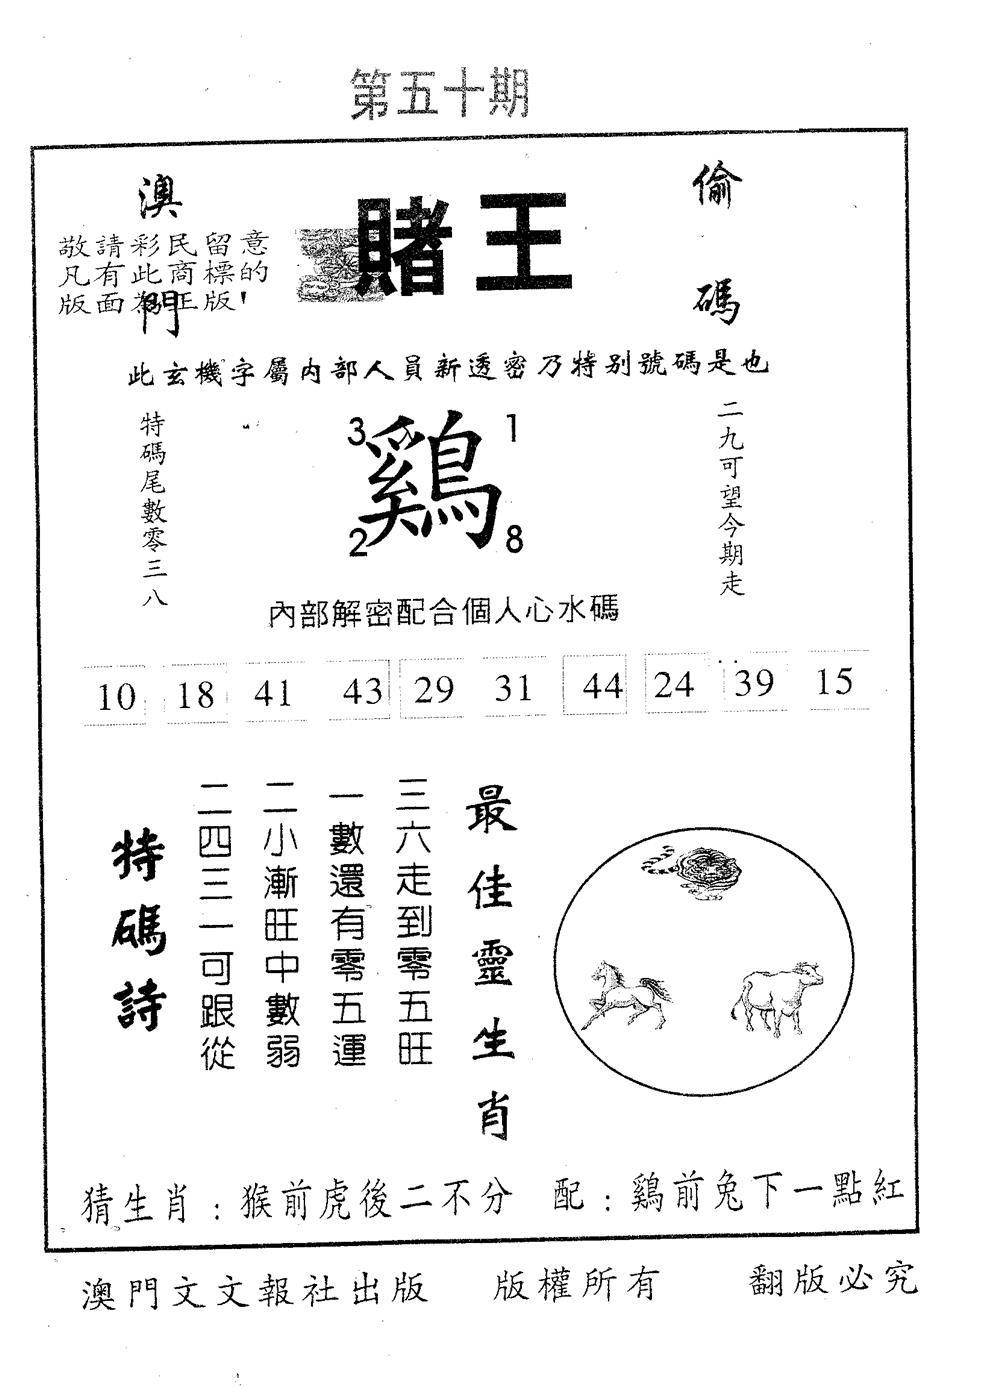 第五十期
澳門
賭王
偷碼
敬請彩民留意
凡有此商標的
版面為正版！
此玄機字屬内部人員新透密乃特别號碼是也
特碼尾數零三八
3 1
鷄
2 8
二九可望今期走
內部解密配合個人心水碼
10 18 41 43 29 31 44 24 39 15
最佳靈生肖
三六走到零五旺
一數還有零五運
二小漸旺中數弱
二四三一可跟從
特碼詩
猜生肖：猴前虎後二不分 配：鷄前兔下一點紅
澳門文文報社出版 版權所有 翻版必究